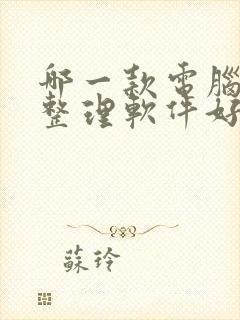 哪一款電腦
整理軟件好
蘇玲